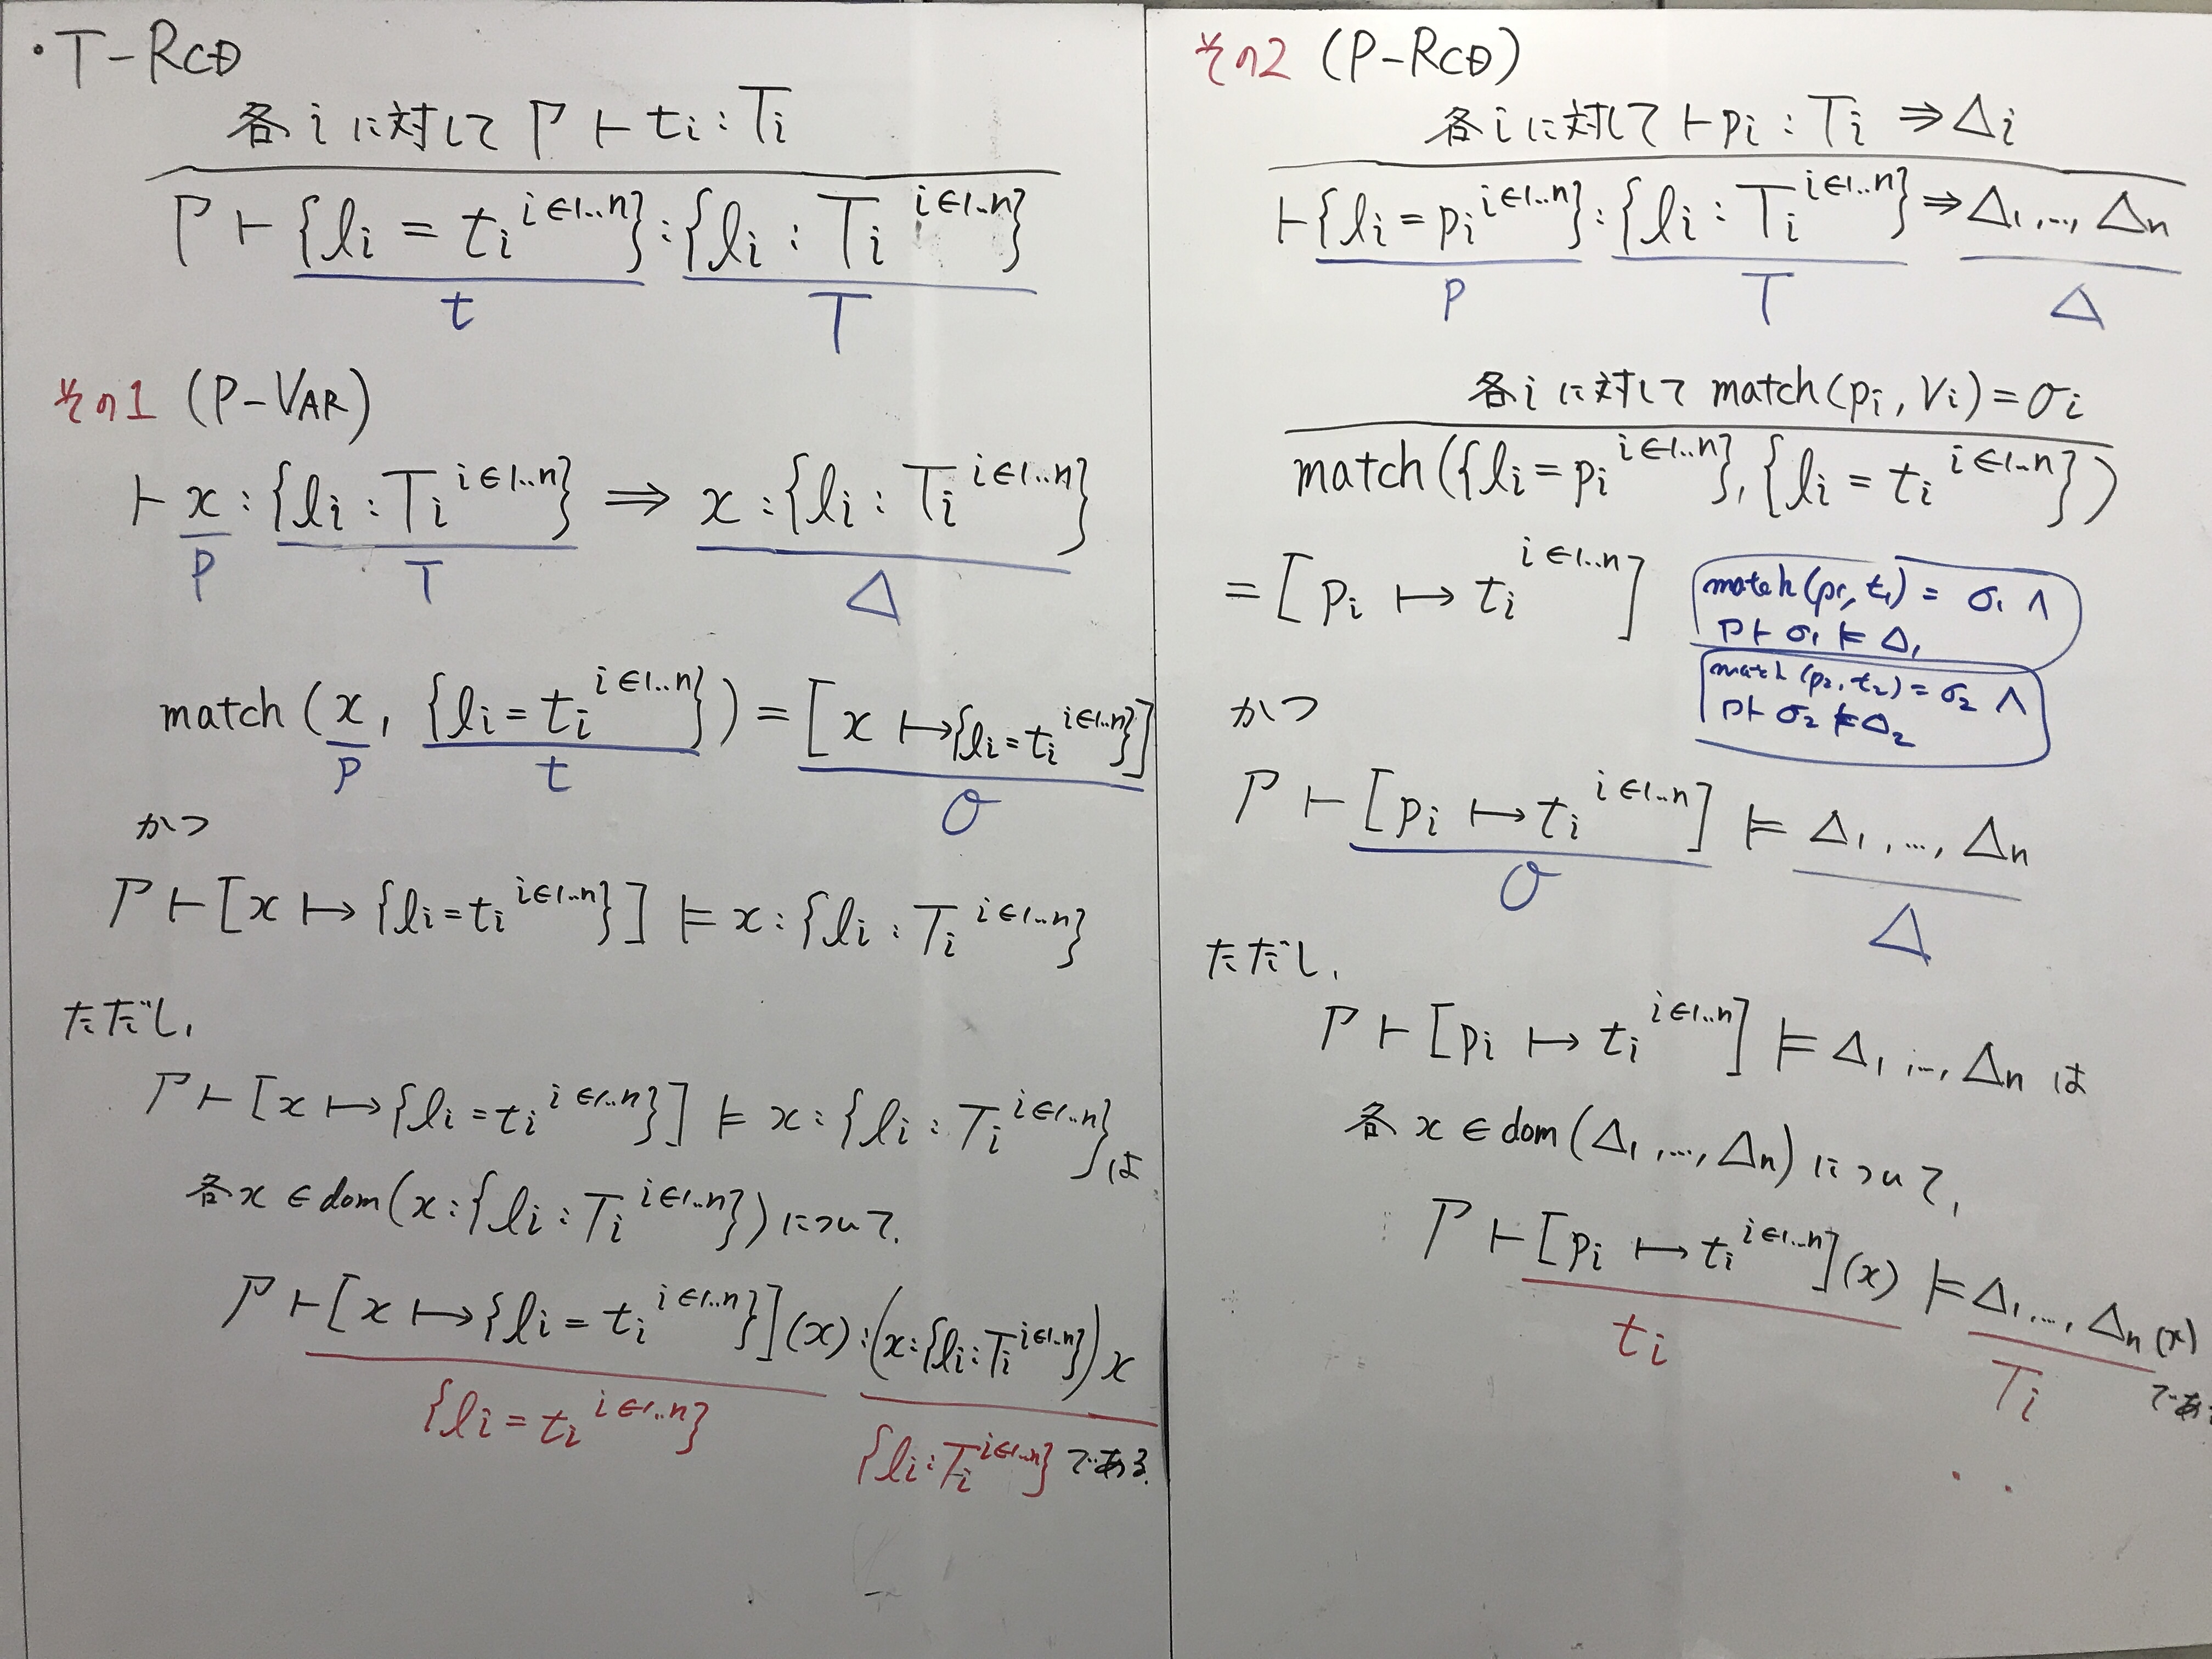 ・T-RCD
各iに対して Γ ⊢ ti : Ti
Γ ⊢ {li = ti i∈1..n} : {li : Ti i∈1..n}
t T
その1 (P-VAR)
⊢ x : {li : Ti i∈1..n} ⇒ x : {li : Ti i∈1..n}
P T Δ
match (x, {li = ti i∈1..n}) = [x ↦ {li = ti i∈1..n}]
P t σ
かつ
Γ ⊢ [x ↦ {li = ti i∈1..n}] ⊨ x : {li : Ti i∈1..n}
ただし,
Γ ⊢ [x ↦ {li = ti i∈1..n}] ⊨ x : {li : Ti i∈1..n} は
各x ∈ dom(x : {li : Ti i∈1..n}) について,
Γ ⊢ [x ↦ {li = ti i∈1..n}](x) : (x : {li : Ti i∈1..n}) x
{li = ti i∈1..n} {li : Ti i∈1..n} である.
その2 (P-RCD)
各iに対して ⊢ pi : Ti ⇒ Δi
⊢ {li = pi i∈1..n} : {li : Ti i∈1..n} ⇒ Δ1, ..., Δn
P T Δ
各iに対して match(pi, vi) = σi
match({li = pi i∈1..n}, {li = ti i∈1..n})
= [pi ↦ ti i∈1..n]
match(p1, t1) = σ1 ∧
Γ ⊢ σ1 ⊨ Δ1
match(p2, t2) = σ2 ∧
Γ ⊢ σ2 ⊨ Δ2
かつ
Γ ⊢ [pi ↦ ti i∈1..n] ⊨ Δ1, ..., Δn
σ Δ
ただし,
Γ ⊢ [pi ↦ ti i∈1..n] ⊨ Δ1, ..., Δn は
各 x ∈ dom(Δ1, ..., Δn) について,
Γ ⊢ [pi ↦ ti i∈1..n](x) ⊨ Δ1, ..., Δn (x)
ti Ti であ